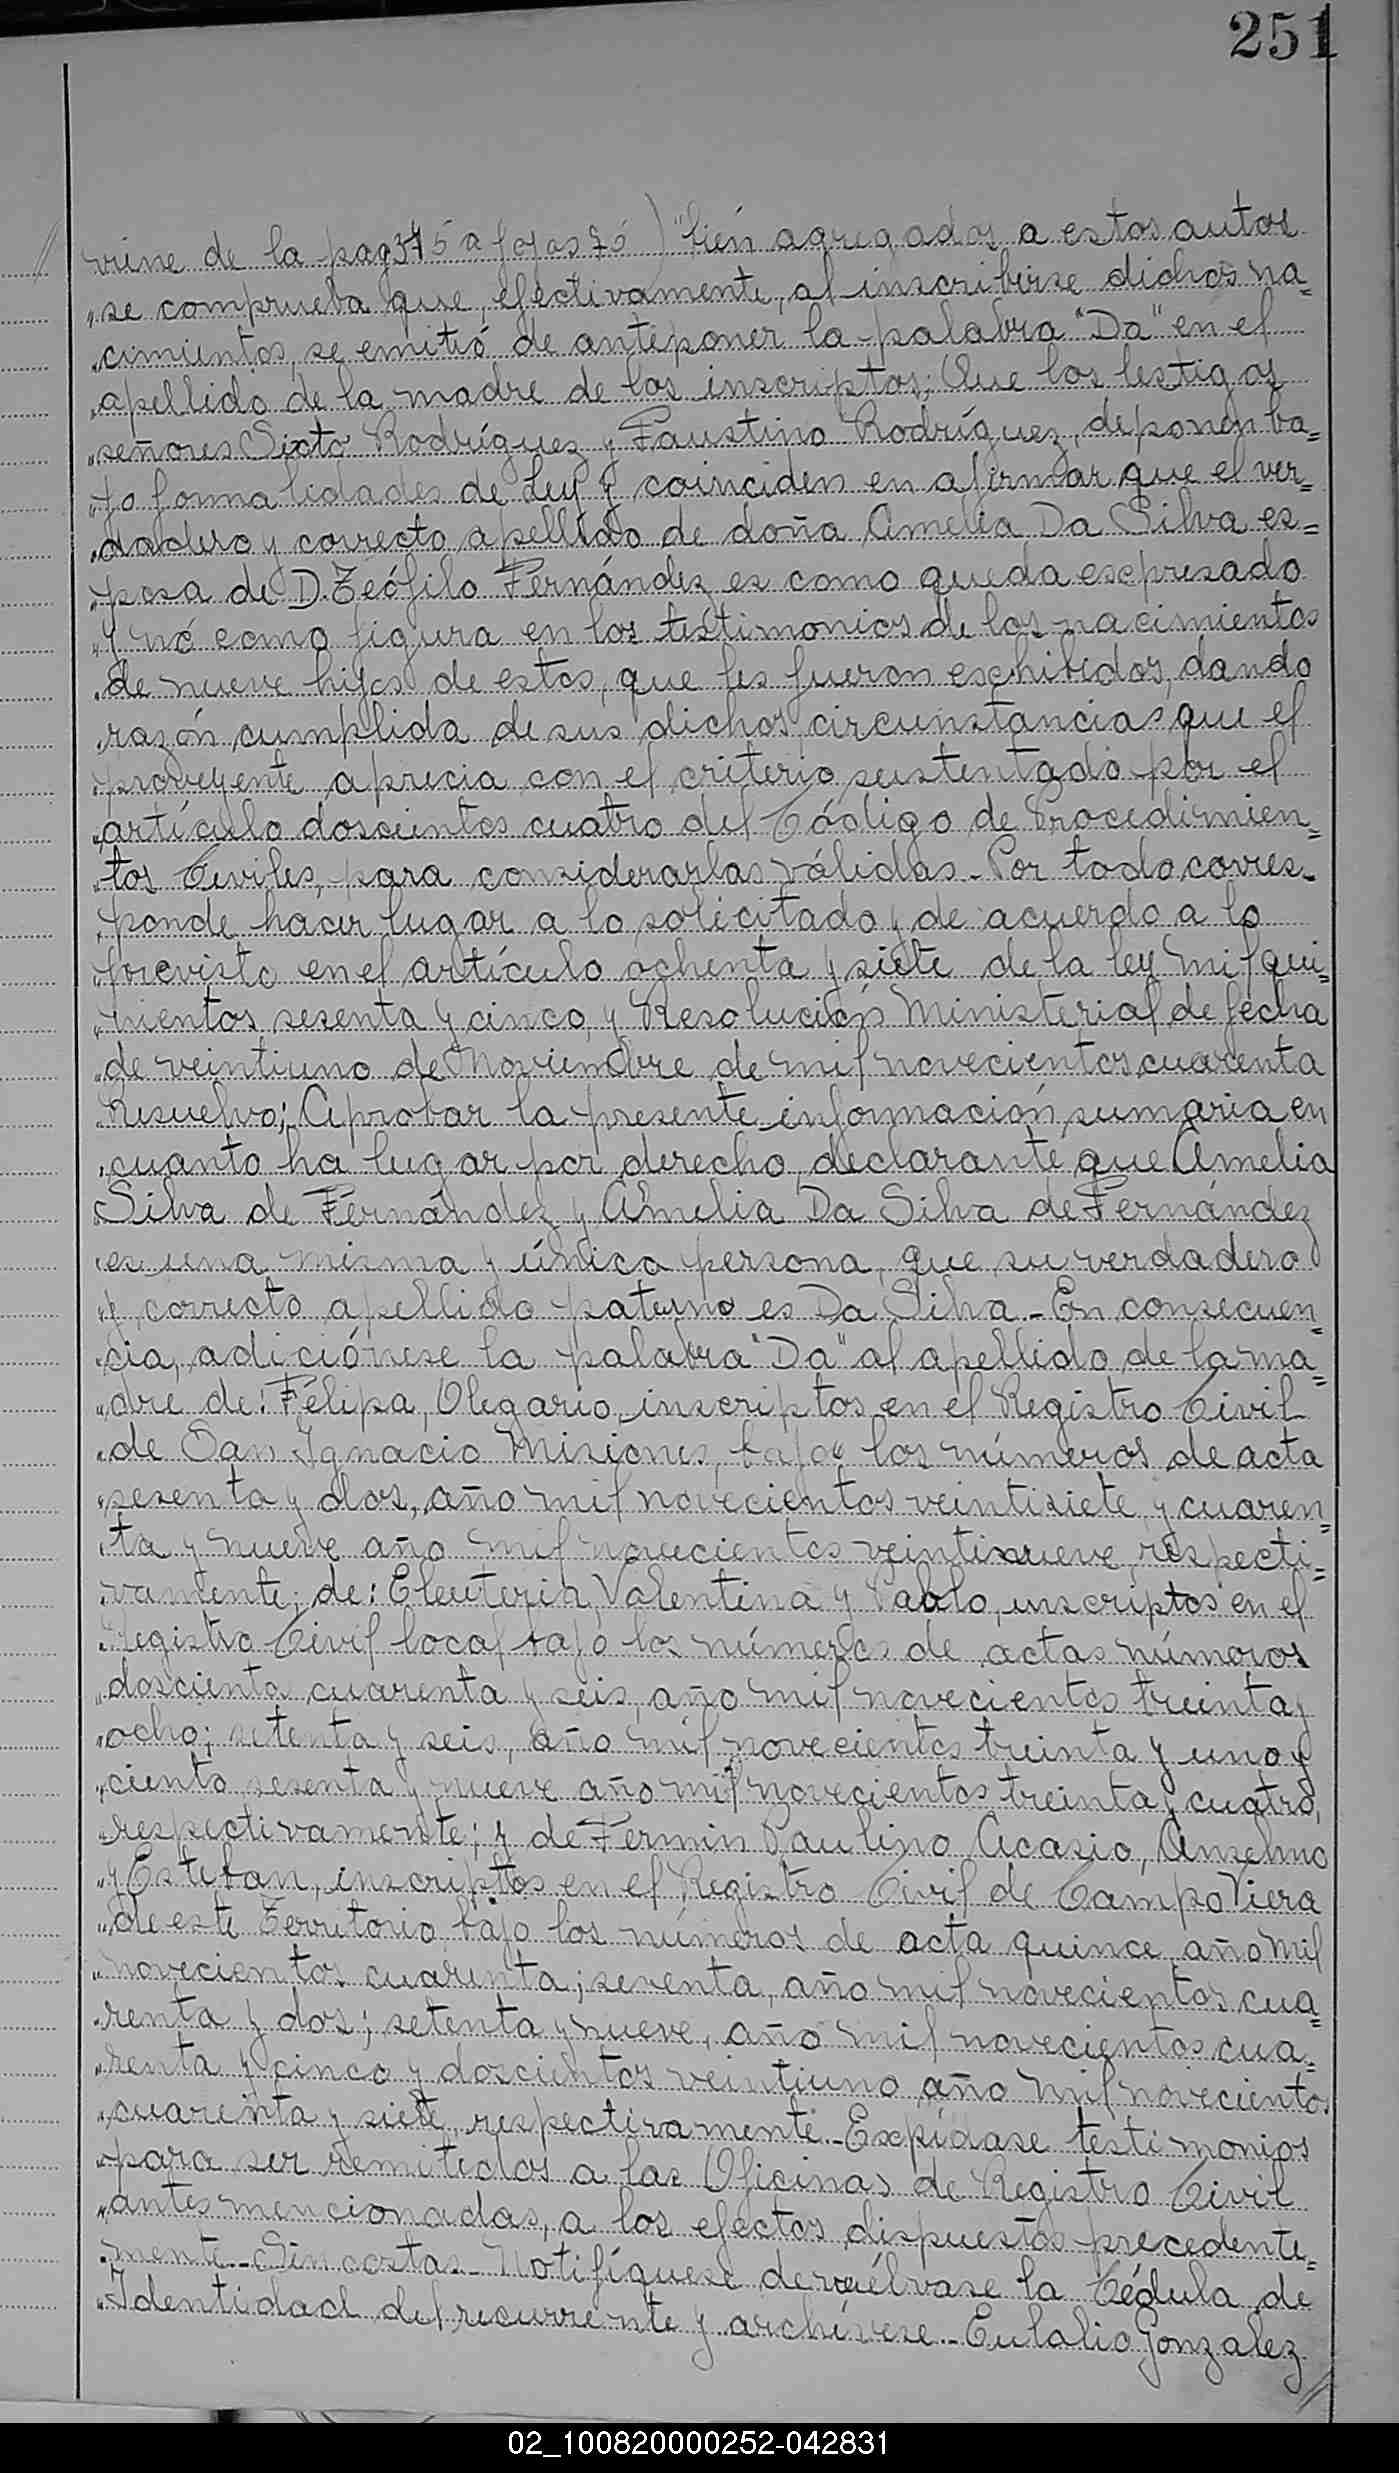 251
viene de la pag 375 a fojas 76) "bién agregados a estos autos
"se comprueba que, efectivamente, al inscribirse dichos na=
"cimientos, se emitió de anteponer la palabra "Da" en el
"apellido de la madre de los inscriptos; Que los testigos
"señores Sixto Rodríguez y Faustino Rodríguez, deponen ba=
"jo formalidades de Ley y coinciden en afirmar que el ver=
"dadero y correcto apellido de doña Amelia Da Silva es=
"posa de D. Teófilo Fernández es como queda escpresado
"y nó como figura en los testimonios de los nacimientos
"de nueve hijos de estos, que les fueron eschibidos, dando
"razón cumplida de sus dichos, circunstancias que el
"proveyente aprecia con el criterio sustentado por el
"artículo doscientos cuatro del Código de Procedimien=
"tos Civiles, para considerarlas válidas - Por todo corres-
"ponde hacer lugar a lo solicitado y de acuerdo a lo
"previsto en el artículo ochenta y siete de la ley mil qui=
"nientos sesenta y cinco, y Resolución Ministerial de fecha
"de veintiuno de Noviembre de mil novecientos cuarenta
"Resuelvo; Aprobar la presente información sumaria en
"cuanto ha lugar por derecho, declarante que Amelia
"Silva de Fernández y Amelia Da Silva de Fernández
"es una misma y única persona, que su verdadero
"y correcto apellido paterno es Da Silva - En consecuen=
"cia, adiciónese la palabra "Da" al apellido de la ma=
"dre de: Félipa, Olegario, inscriptos en el Registro Civil
"de San Ignacio Misiones, bajo los números de acta
"sesenta y dos, año mil novecientos veintisiete y cuaren=
"ta y nueve año mil novecientos veintinueve respecti=
"vamente; de: Eleuteria, Valentina y Pablo, inscriptos en el
"Registro Civil local bajo los números de actas números
"doscientos cuarenta y seis, año mil novecientos treinta y
"ocho; setenta y seis, año mil novecientos treinta y uno y
"ciento sesenta y nueve año mil novecientos treinta y cuatro,
"respectivamente; y de Fermin Paulino, Acasio, Anselmo
"y Esteban, inscriptos en el Registro Civil de Campo Viera
"de este Territorio, bajo los números de acta quince, año mil
"novecientos cuarenta; sesenta, año mil novecientos cua=
"renta y dos; setenta y nueve, año mil novecientos cua=
"renta y cinco y doscientos veintiuno año mil novecientos
"cuarenta y siete, respectivamente - Expídase testimonios
"para ser remitidos a las Oficinas de Registro Civil
"antes mencionadas, a los efectos dispuestos precedente=
"mente - Sin costas - Notifíquese devuélvase la Cédula de
"Identidad del recurrente y archívese - Eulalio Gonzalez
02_100820000252-042831